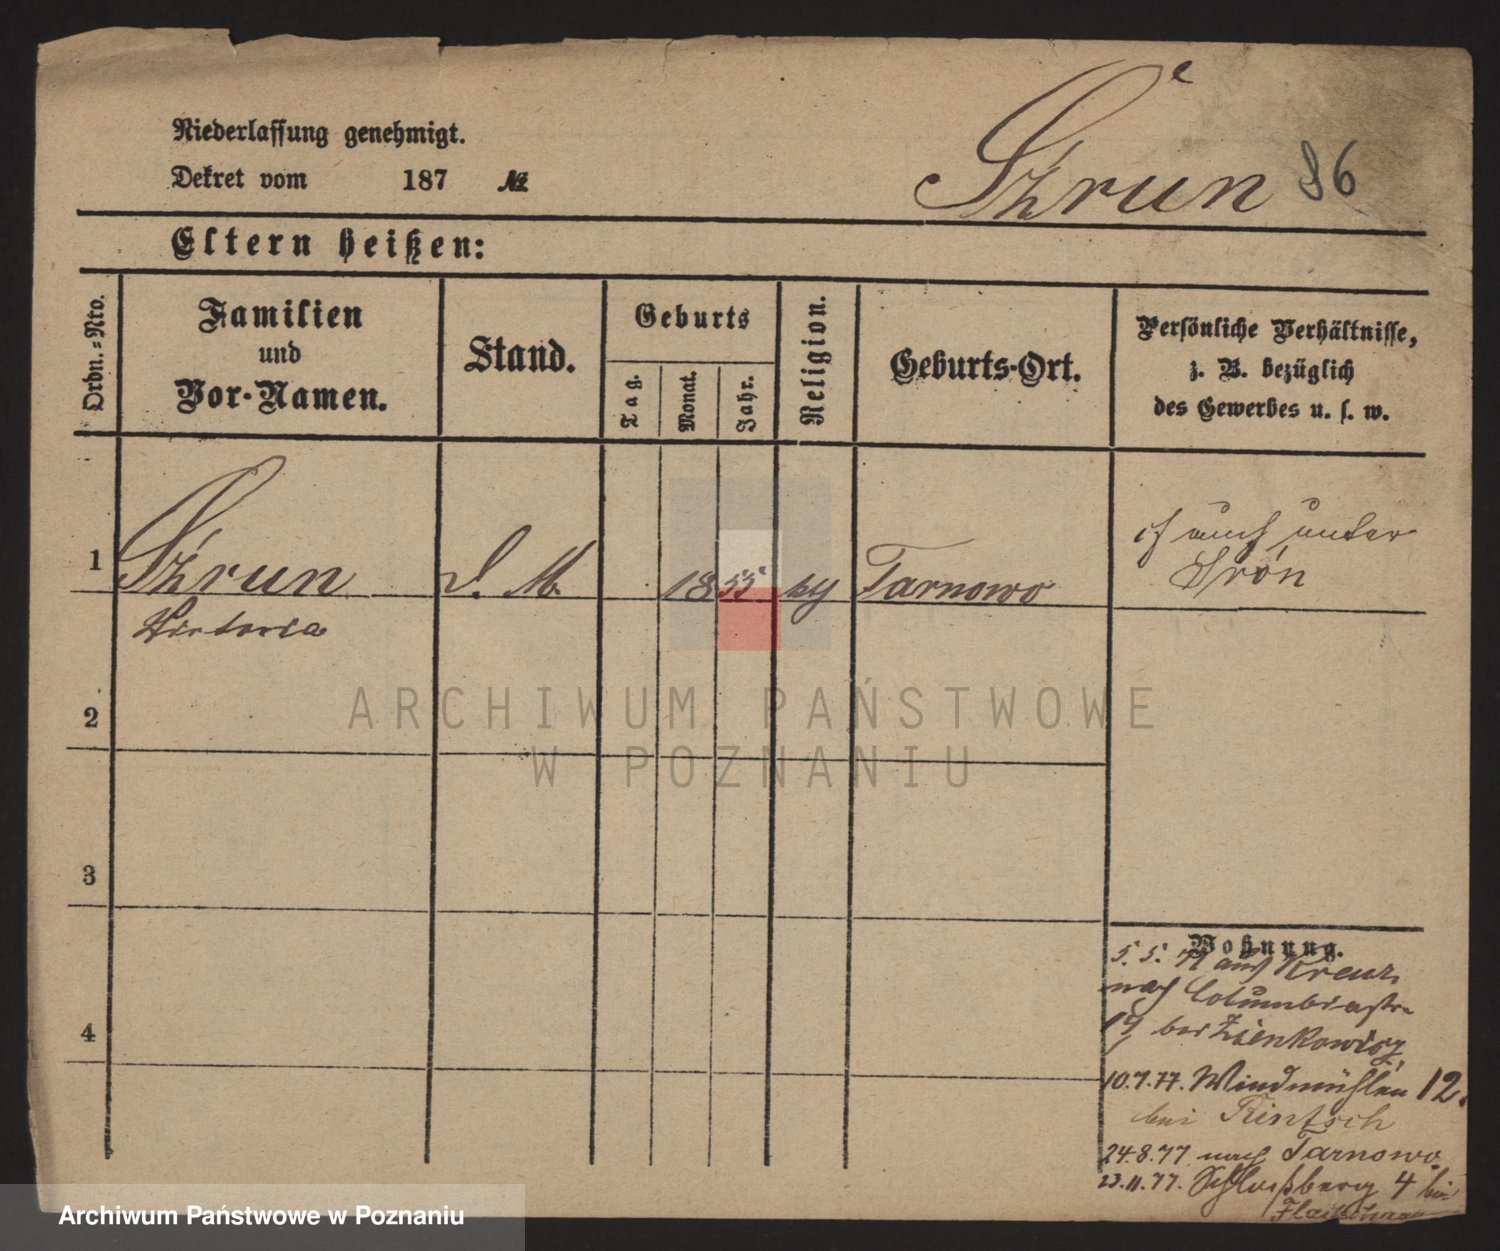 Niederlassung genehmigt.
Dekret vom 187 №
Szrun 86
Eltern heißen:
Ordn.-Nro.
Familien
und
Vor-Namen.
Stand.
Geburts
Tag.
Monat.
Jahr.
Religion.
Geburts-Ort.
Persönliche Verhältnisse,
z. B. bezüglich
des Gewerbes u. s. w.
1 Szrun D. M. 1855 kth Tarnowo
Victoria
auch unter
Srón
2
3
4
Wohnung.
5. 5. 77 aus Kreuz
nach Columbiastr.
19 bei Zienkowicz
10.7.77. Windmühlen 12.
bei Rintsch
24.8.77 nach Tarnowo
23.11.77. Schloßberg 4 bei
ARCHIWUM PAŃSTWOWE
W POZNANIU
Archiwum Państwowe w Poznaniu